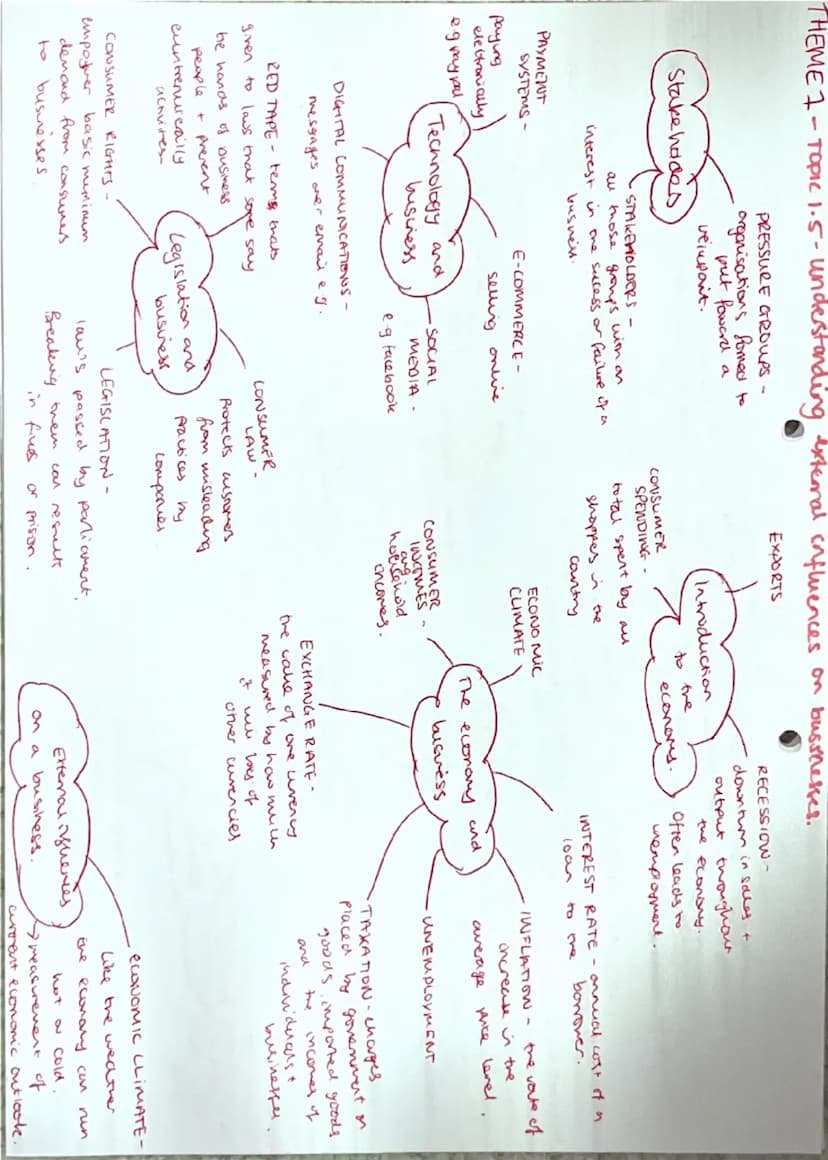 THEME 1 - TOPIC 1.5 - understanding external influences on businesses.
Stakeholders
PRESSURE GROUPS -
organisations formed to
put forward a
veiwpoint.
STAKEHOLDERS -
all those groups with an
interest in the sucess or failure of a
business.
Introduction
to the
economy.
EXPORTS
RECESSION -
downturn in sales +
output throughout
the economy
Often leads to
unemployment.
CONSUMER
SPENDING -
total spent by all
shoppers in the
country
Technology and
business
PAYMENT
SYSTEMS -
paying
electronically
e.g paypal
E-COMMERCE -
selling online
SOCIAL
MEDIA -
e.g facebook
DIGITAL COMMUNICATIONS -
messages over email e.g.
The economy and
business
ECONOMIC
CLIMATE
CONSUMER
INCOMES -
avg
household
incomes.
INTEREST RATE - annual cost of a
loan to the borrower.
INFLATION - the rate of
increase in the
average price level.
UNEMPLOYMENT
TAXATION - charges
placed by government on
goods, imported goods
and the incomes of
individuals +
businesses.
EXCHANGE RATE -
the value of one currency
measured by how much
it will buy of
other currencies
Legislation and
business
RED TAPE - terms that
given to laws that some say
tie hands of business
people + prevent
activities
CONSUMER RIGHTS -
basic minimum
demand from consumers
to businesses
CONSUMER
LAW -
Protects customers
from misleading
practices by
companies
LEGISLATION -
laws passed by parliament.
Breaking them can result
in fines or prison.
External influences
on a business.
ECONOMIC CLIMATE -
Like the weather
the economy can run
hot or cold.
→ measurement of
current economic outlook.